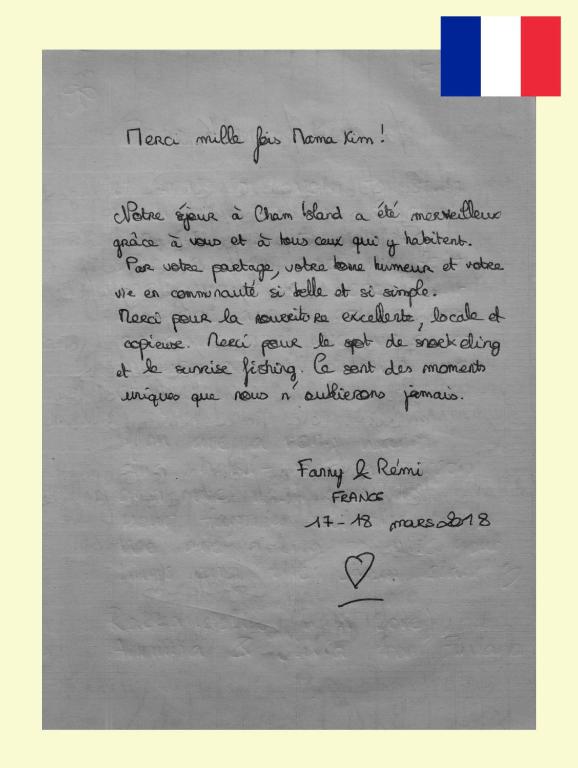 Merci mille fois Mama Kim !
Notre séjour à Cham Island a été merveilleux
grâce à vous et à tous ceux qui y habitent.
Par votre partage, votre bone humeur et votre
vie en communauté si belle et si simple.
Merci pour la nourriture excellente, locale et
copieuse. Merci pour le spot de snorkeling
et le sunrise fishing. Ce sont des moments
uniques que nous n'oublierons jamais.
Fanny & Rémi
FRANCE
17-18 mars 2018